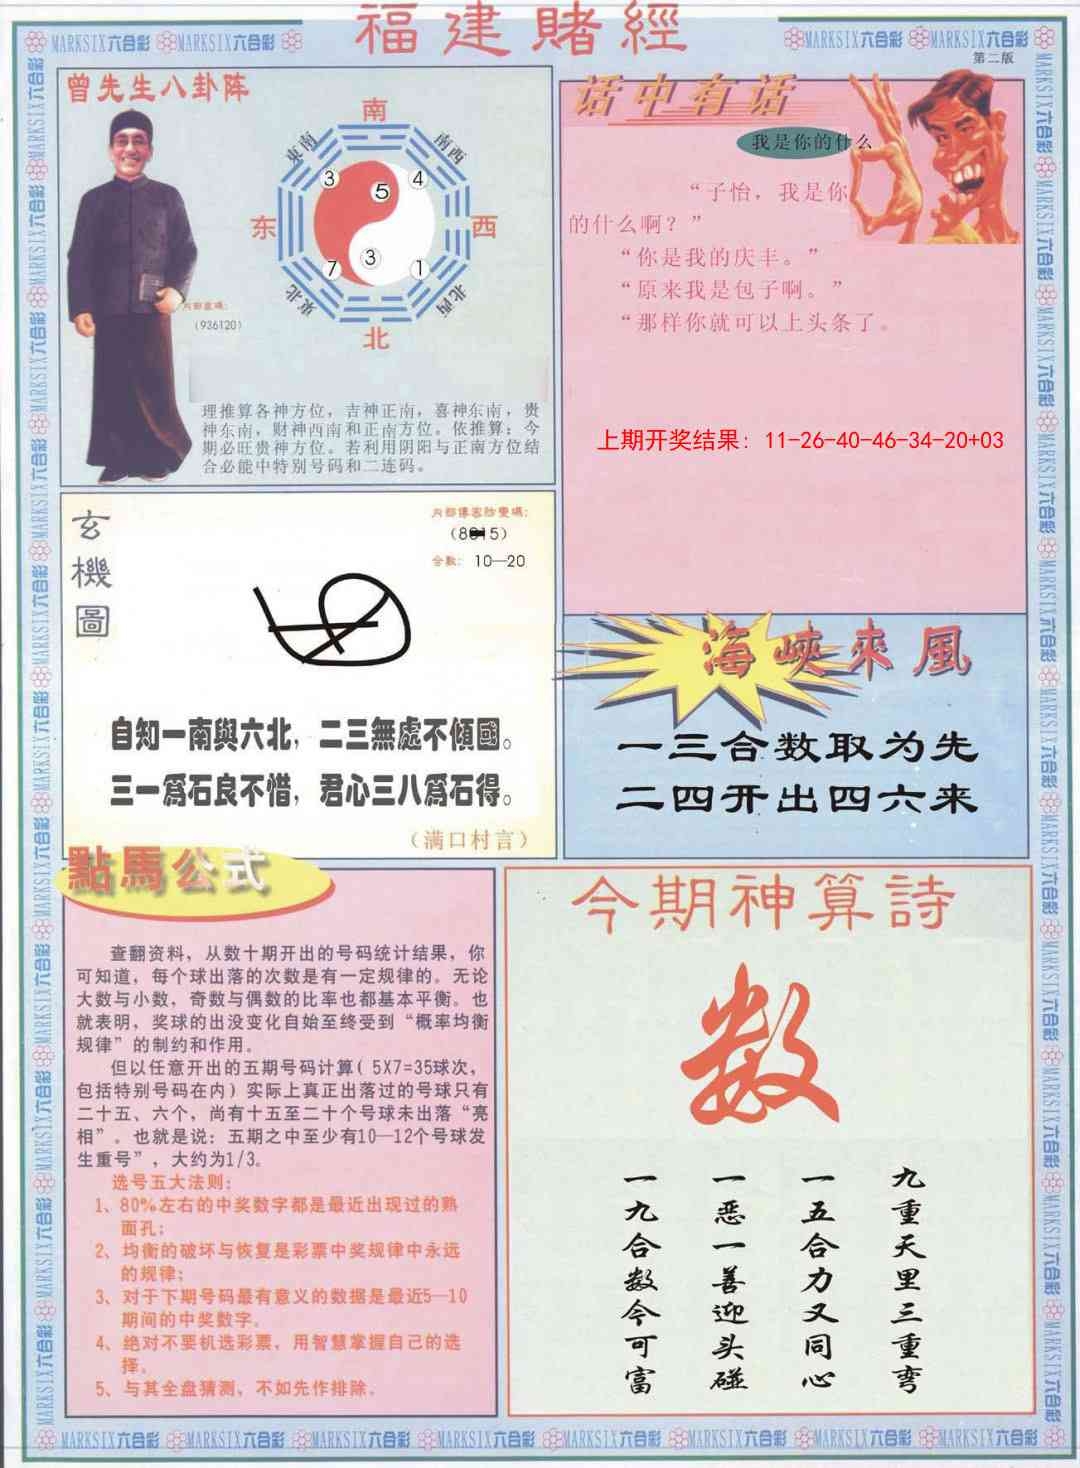 福建賭經
MARKSIX六合彩 MARKSIX六合彩
MARKSIX六合彩 MARKSIX六合彩
第二版
曾先生八卦阵
南
東南
南西
3
5
4
东
西
7
3
1
東北
北西
北
内部直碼:
(936120)
理推算各神方位，吉神正南，喜神东南，贵
神东南，财神西南和正南方位。依推算：今
期必旺贵神方位。若利用阴阳与正南方位结
合必能中特别号码和二连码。
话中有话
我是你的什么
“子怡，我是你
的什么啊？”
“你是我的庆丰。”
“原来我是包子啊。”
“那样你就可以上头条了。
上期开奖结果: 11-26-40-46-34-20+03
玄機圖
合數: 10—20
自知一南與六北，二三無處不傾國。
三一為石良不惜，君心三八為石得。
（满口村言）
海峽來風
一三合数取为先
二四开出四六来
點馬公式
查翻资料，从数十期开出的号码统计结果，你
可知道，每个球出落的次数是有一定规律的。无论
大数与小数，奇数与偶数的比率也都基本平衡。也
就表明，奖球的出没变化自始至终受到“概率均衡
规律”的制约和作用。
但以任意开出的五期号码计算( 5X7=35球次，
包括特别号码在内) 实际上真正出落过的号球只有
二十五、六个，尚有十五至二十个号球未出落“亮
相”。也就是说：五期之中至少有10—12个号球发
生重号”，大约为1/3。
选号五大法则：
1、80%左右的中奖数字都是最近出现过的熟
面孔；
2、均衡的破坏与恢复是彩票中奖规律中永远
的规律；
3、对于下期号码最有意义的数据是最近5—10
期间的中奖数字。
4、绝对不要机选彩票，用智慧掌握自己的选
择。
5、与其全盘猜测，不如先作排除。
今期神算詩
数
九重天里三重弯
一五合力又同心
一恶一善迎头碰
一九合数今可富
MARKSIX六合彩 MARKSIX六合彩 MARKSIX六合彩 MARKSIX六合彩 MARKSIX六合彩 MARKSIX六合彩 MARKSIX六合彩 MARKSIX六合彩